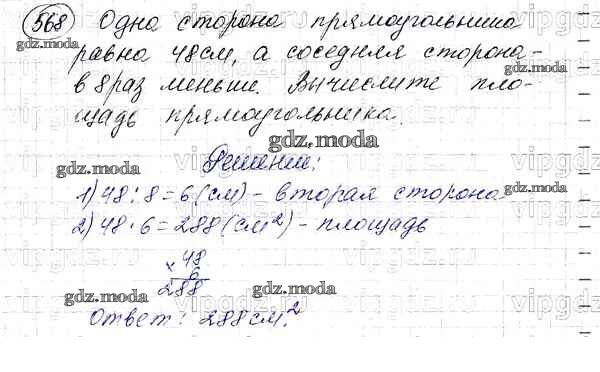 568 Одна сторона прямоугольника
равна 48см, а соседняя сторона -
в 8 раз меньше. Вычислите пло-
щадь прямоугольника.
Решение:
1) 48 : 8 = 6 (см) - вторая сторона
2) 48 · 6 = 288 (см²) - площадь
× 48
6
288
Ответ: 288 см².
gdz.moda
gdz.moda
gdz.moda
gdz.moda
gdz.moda
gdz.moda
gdz.moda
gdz.moda
vipgdz
vipgdz
vipgdz